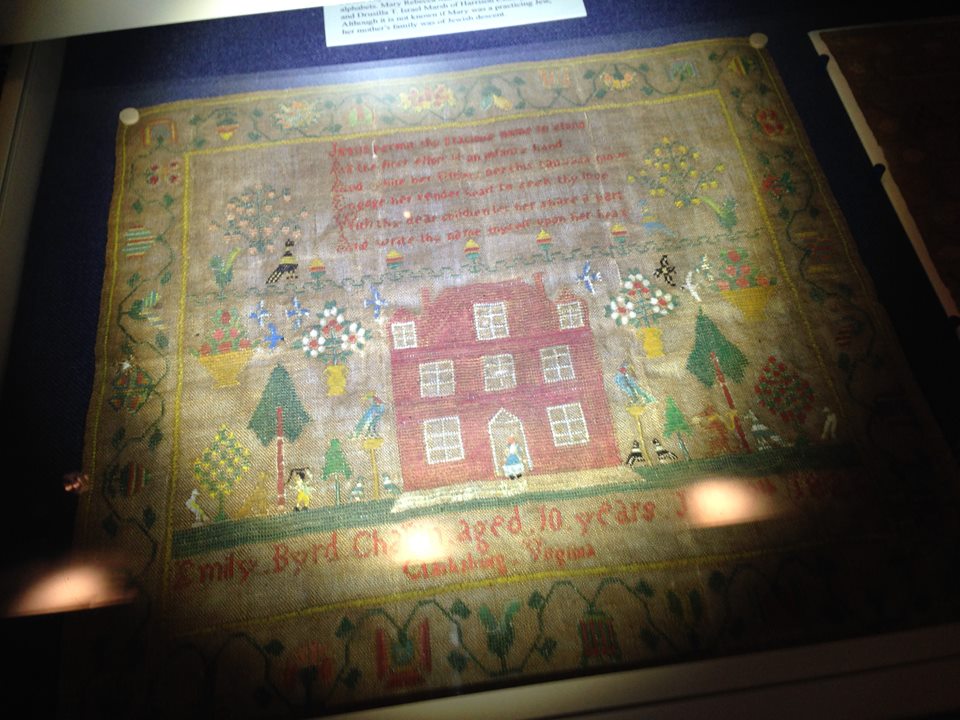 alphabets. Mary Rebecca
and Drusilla T. Israel Marsh of Harrison
Although it is not known if Mary was a practicing Jew,
her mother's family was of Jewish descent.
Jesus permit thy gracious name to stand
As the first effort of an infants hand
And while her fingers oer this canvass move
Engage her tender heart to seek thy love
With thy dear children let her share a part
And write thy name thyself upon her heart
Emily Byrd aged 10 years
Clarksburg Virginia